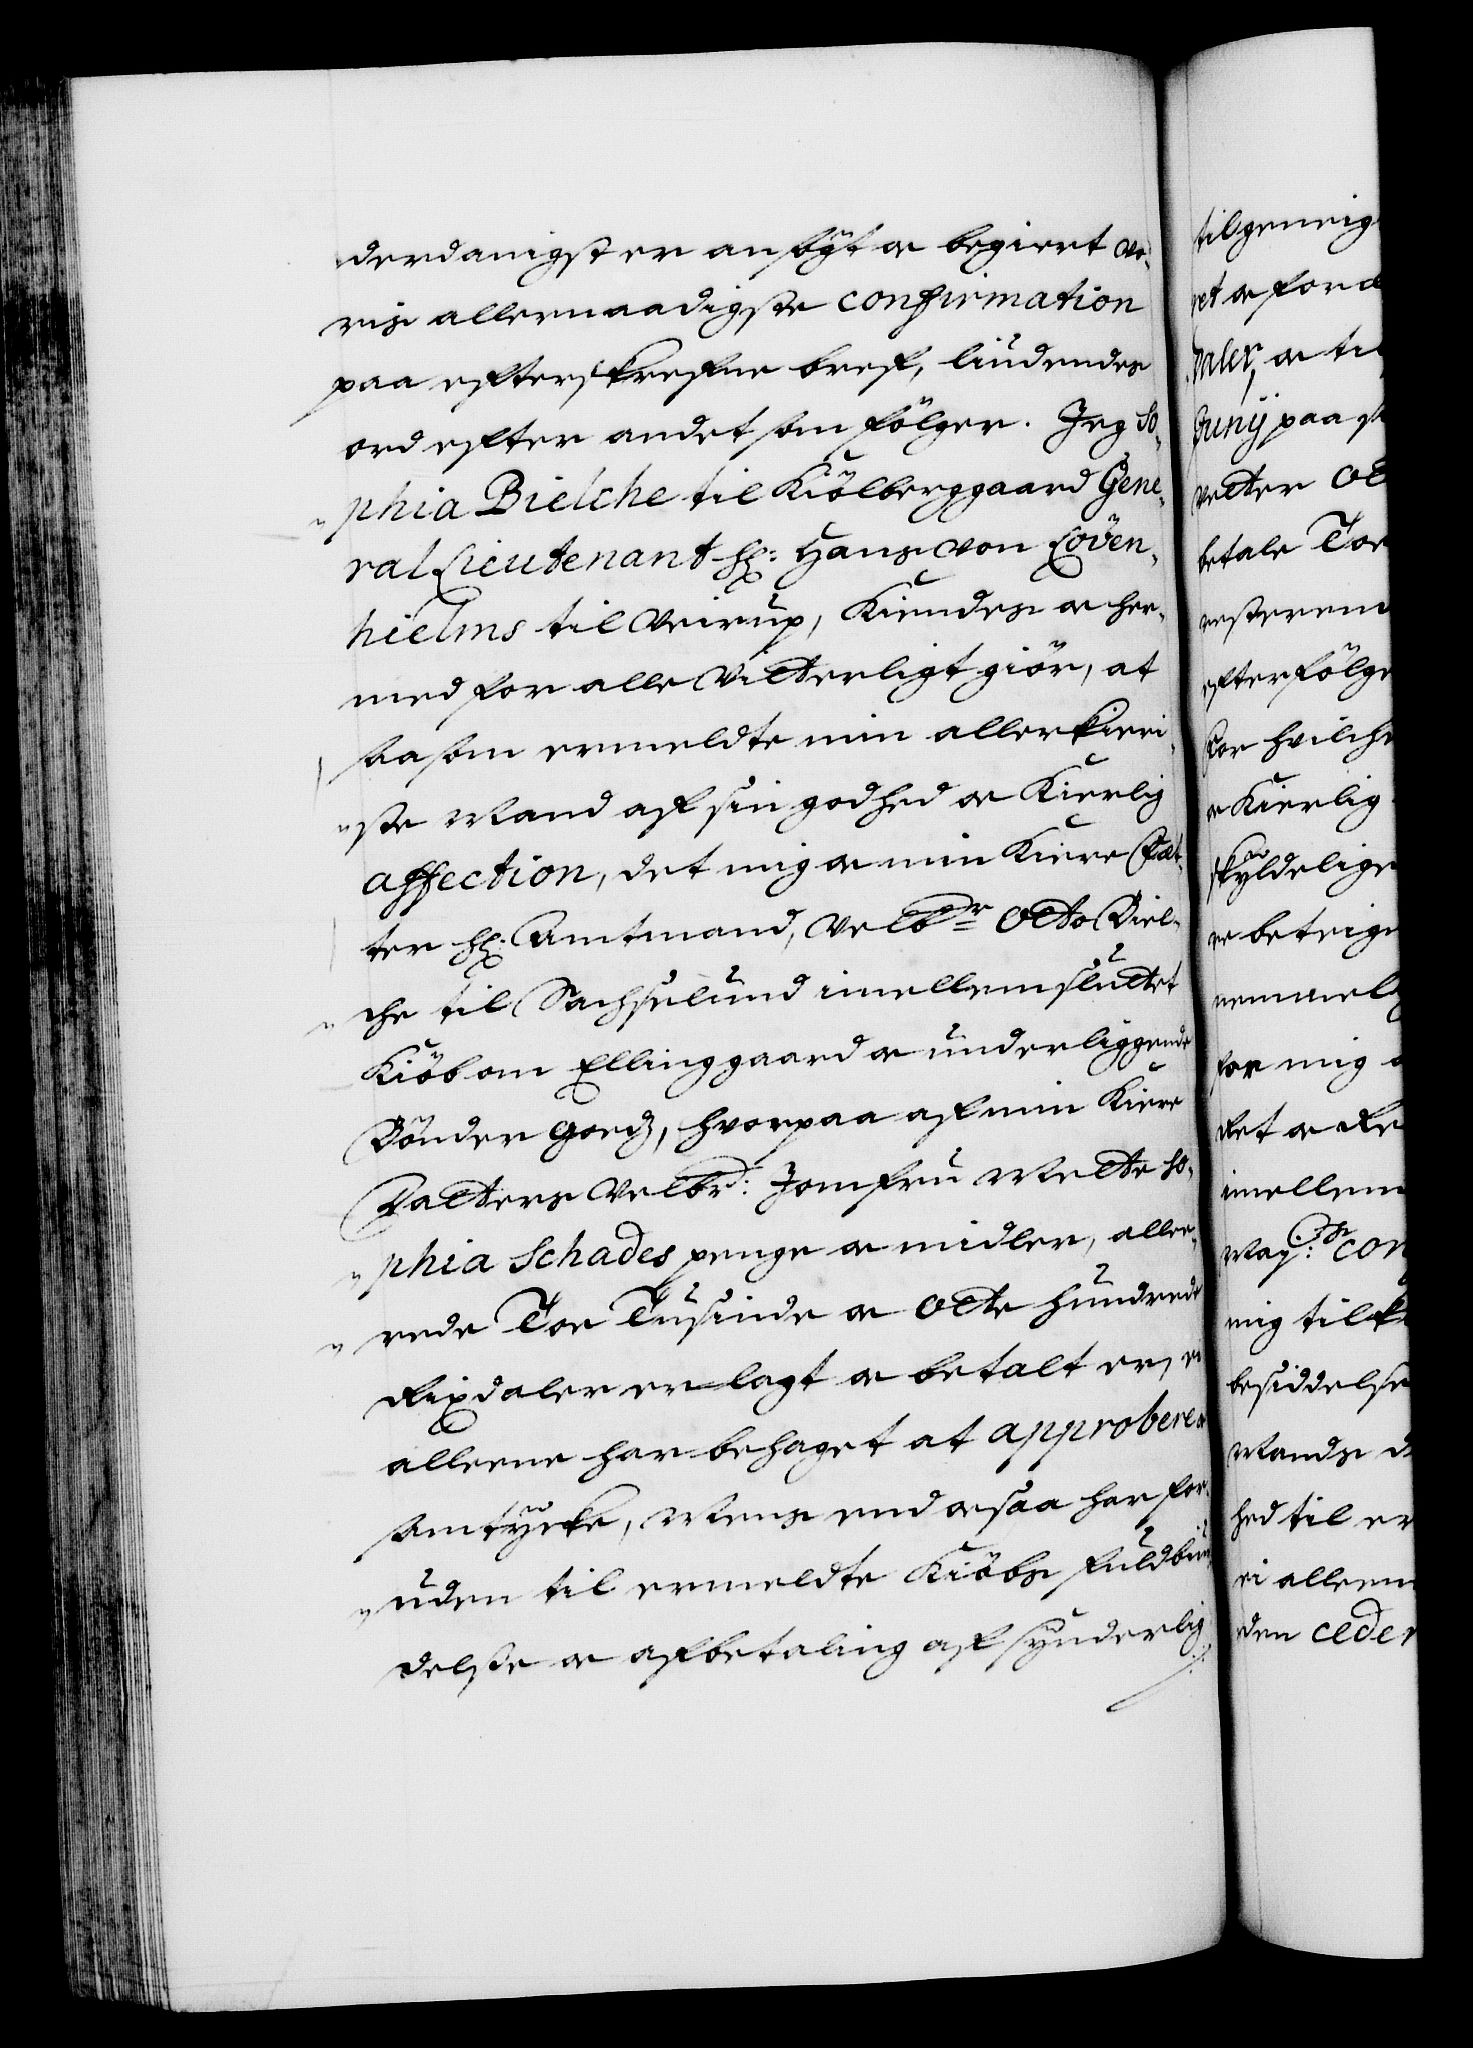 derdanigst er ansögt oc begiert vo¬
ris allernaadigste confirmation
paa efterskrefne bref, liudendes
ord efter andet som fölger. Jeg So¬
phia Bielche til Kiölberggaard Gene¬
ral Lieutenant H: Hans von Löven¬
hielms til Veirup, Kiendes oc her¬
med for alle Vitterligt giör, at
saasom ermeldte min allerkieri¬
ste Mand aff sin godhed oc Kierlig
affection, det mig oc min Kiere Fat¬
ter H: Amtmand, Velbr Otto Biel¬
che til Sachselund imellemsluttet
Kiöb om Ellinggaard oc underliggende
Bönder Goedz, hvorpaa aff min Kiere
Fatters Velbr: Jomfru Mette So¬
phia Schades penge oc midler, alle¬
rede Toe Tusinde oc Otte hundrede
Rixdaler er lagt oc betalt er, ei
alleene har behaget at approbere oc
samtycke, Mens end ocsaa har for¬
uden til ermeldte Kiöbs fuldbiu¬
delste oc afbetaling aff synderlig
tilgeneig
ret oc for
daler, oc ti
Junij paa
retter
betale Toe
resteren
efterfölge
For hvilche
oc Kierlig
skyldelige
re beteigne
nemmelig
for mig
Ret oc Re
imellem
May: con
mig tilk
besiddelse
Mands
hed til er
ei alleen
den ceder